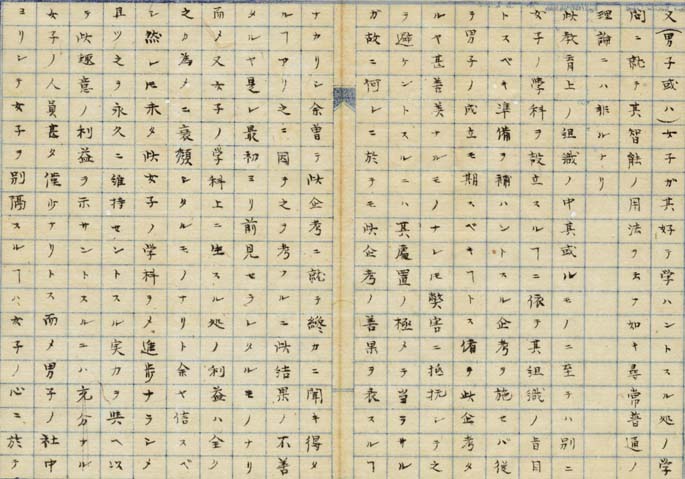 又(男子或ハ)女子ガ其好テ学ハントスル処ノ学
問ニ就テ其智能ノ用法ヲ云フ如キ尋常普通ノ
理論ニハ非ルナリ
此教育上ノ組識ノ中其或ルモノニ至テハ別ニ
女子ノ学科ヲ設立スルヿニ依テ其組識ノ旨目
トスベキ準備ヲ補ハントスル企考ヲ施セバ従
テ男子ノ成立モ期スベキヿトス偖テ此企考タ
ルヤ甚善美ナルモノナレ𪜈弊害ニ抵抗シテ之
ヲ避ケントスルニハ其處置ノ極メテ当ラサル
ガ故ニ何レニ於テモ此企考ノ善果ヲ表スルヿ
ナカリシ余曽テ此企考ニ就テ カニ聞キ得タ
ルヿアリ之ニ因テ之ヲ考フルニ此結果ノ不善
タルヤ是レ最初ヨリ前見セラレタルモノナリ
而〆又女子ノ学科上ニ生スル処ノ利益ハ全ク
之カ為メニ衰頽シタルモノナリト余ヤ信スベ
シ然レ𪜈未タ此女子ノ学科ヲ〆進歩ナラシメ
且ツ之ヲ永久ニ維持セントスル実力ヲ與ヘ以
テ此趣意ノ利益ヲ示サントスルニハ充分ナル
女子ノ人員甚タ僅少ナリトス而〆男子ノ社中
ヨリシテ女子ヲ別隔スルヿハ女子ノ心ニ於テ